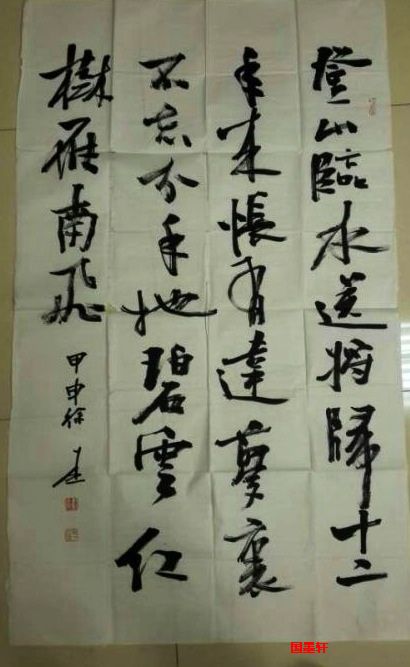 登山臨水送將歸十二
年來悵有違夢裏
不忘分手地碧雲紅
樹雁南飛
甲申徐建
国墨轩